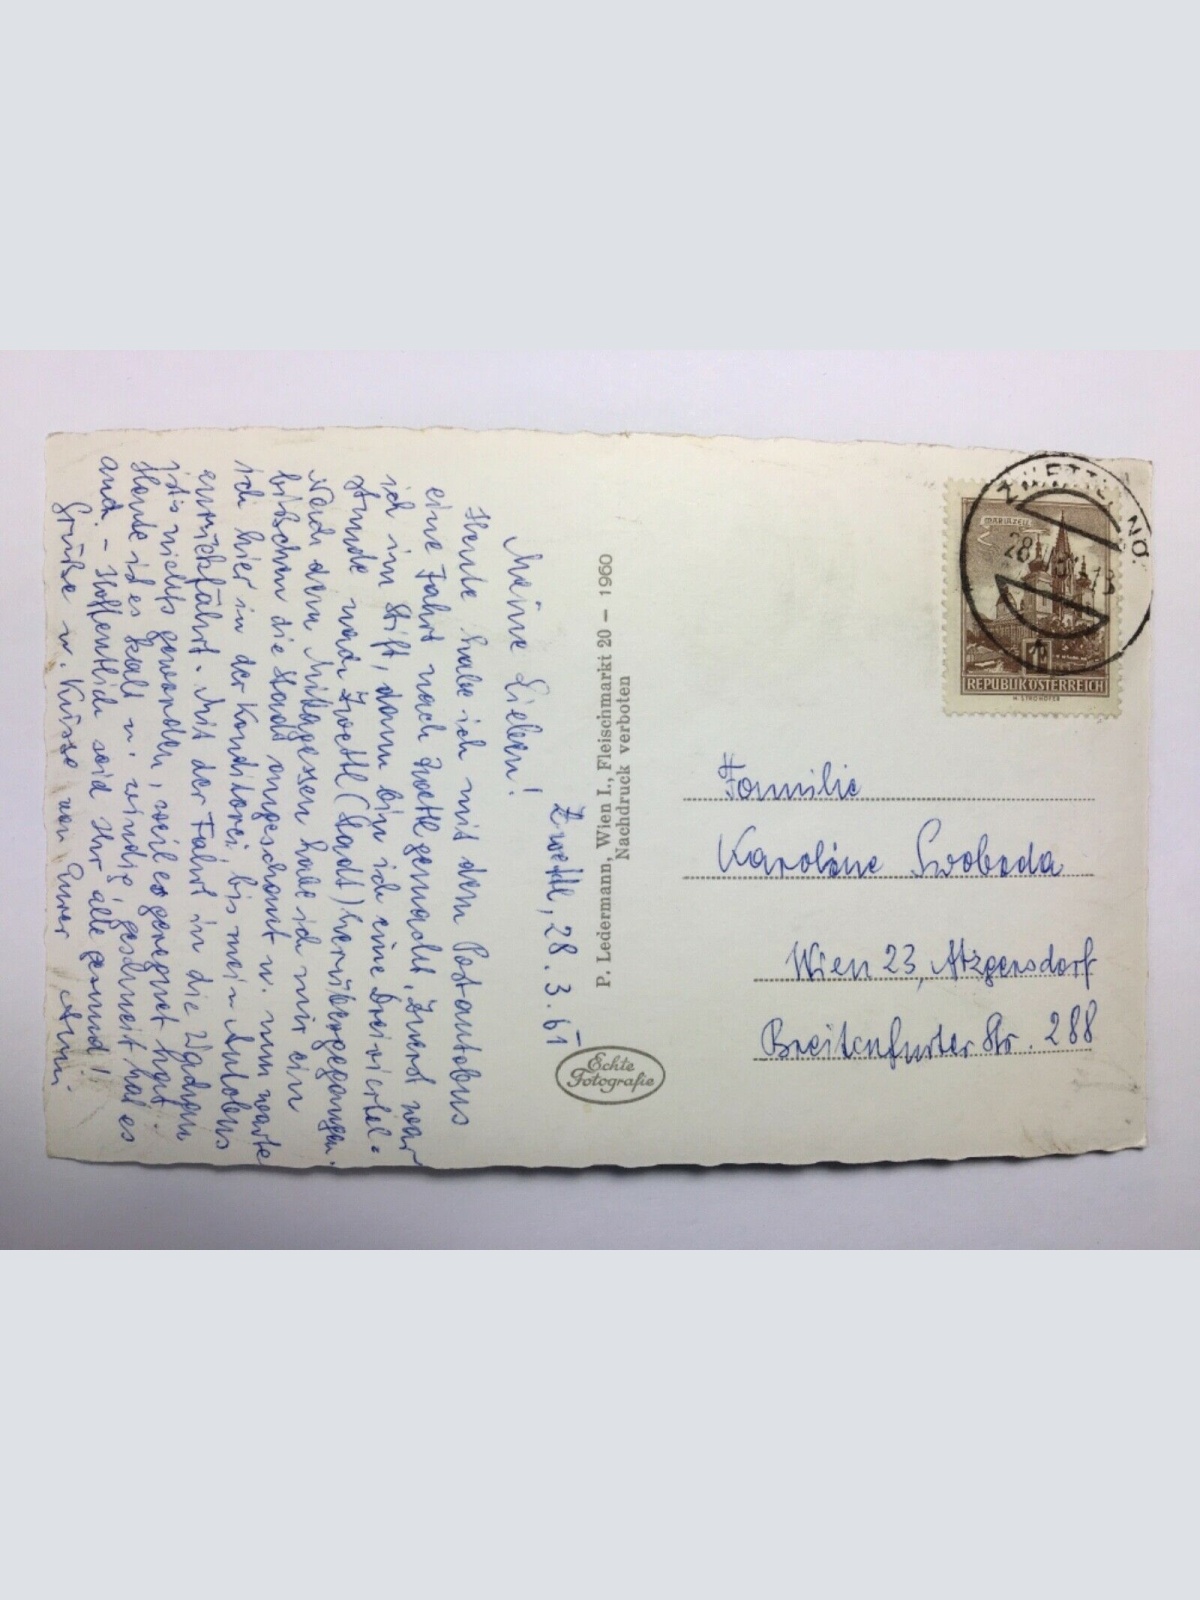 Zwettl, 28. 3. 61
Meine Lieben!
Heute habe ich mit dem Postautobus
eine Fahrt nach Zwettl gemacht. Zuerst war
ich im Stift, dann bin ich eine Dreiviertel-
stunde nach Zwettl (Stadt) herübergegangen.
Nach dem Mittagessen habe ich mir ein
bißchen die Stadt angeschaut u. nun warte
ich hier in der Konditorei, bis mein Autobus
zurückfährt. Mit der Fahrt in die Wachau
ist's nichts geworden, weil es geregnet hat.
Heute ist es kalt u. windig, geschneit hat es
auch - Hoffentlich seid Ihr alle gesund!
Grüße u. Küsse von Eurer
P. Ledermann, Wien I., Fleischmarkt 20 – 1960
Nachdruck verboten
Echte
Fotografie
ZWETTL, NÖ.
28
13
MARIAZELL
REPUBLIK ÖSTERREICH
Familie
Karoline Swoboda
Wien 23, Atzgersdorf
Breitenfurter Str. 288